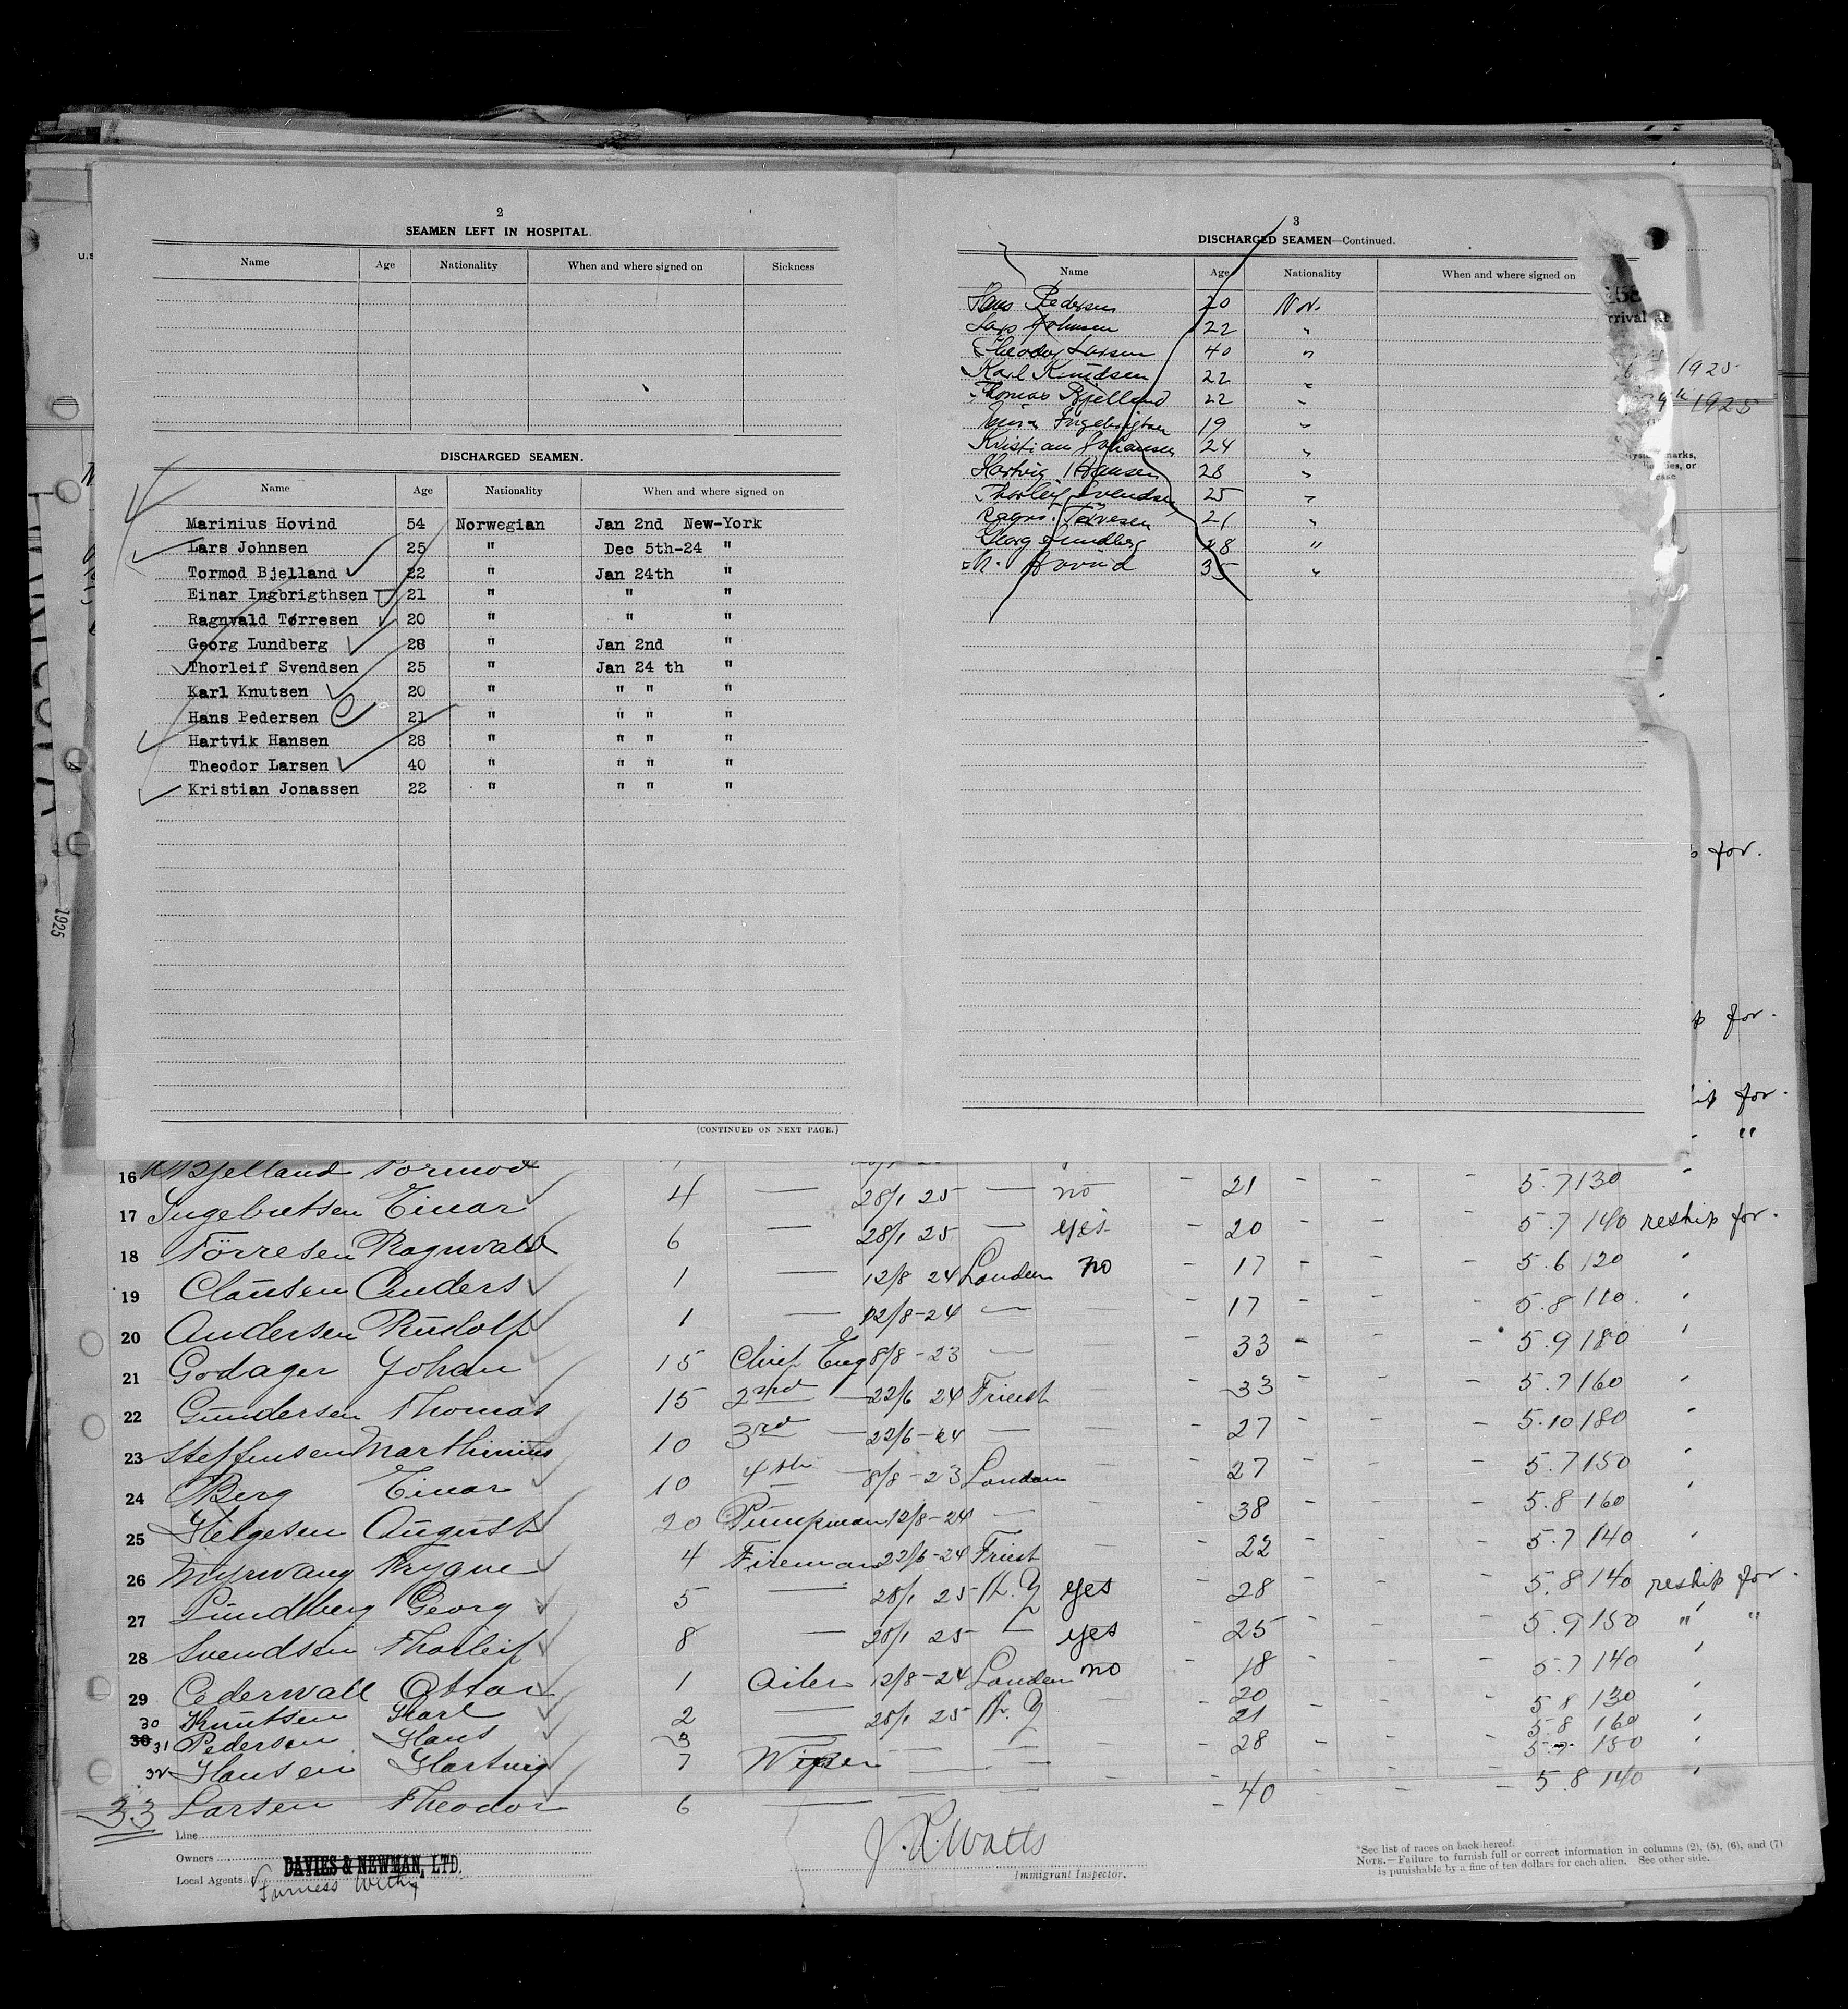 2
SEAMEN LEFT IN HOSPITAL.
Name Age Nationality When and where signed on Sickness
DISCHARGED SEAMEN.
Name Age Nationality When and where signed on
Marinius Hovind 54 Norwegian Jan 2nd New-York
Lars Johnsen 25 " Dec 5th-24 "
Tormod Bjelland 22 " Jan 24th "
Einar Ingbrigthsen 21 " " "
Ragnvald Tørresen 20 " " "
Georg Lundberg 28 " Jan 2nd "
Thorleif Svendsen 25 " Jan 24 th "
Karl Knutsen 20 " " " "
Hans Pedersen 21 " " " "
Hartvik Hansen 28 " " " "
Theodor Larsen 40 " " " "
Kristian Jonassen 22 " " " "
(CONTINUED ON NEXT PAGE.)
3
DISCHARGED SEAMEN—Continued.
Name Age Nationality When and where signed on
Hans Pedersen 20 Nor.
Lars Johnsen 22 "
Theodor Larsen 40 "
Karl Knudsen 22 "
Thomas Bjelland 22 "
Ingebrigtsen 19 "
Kristian Johansen 24 "
Hartvig Hansen 28 "
Thorleif Svendsen 25 "
Ragn. Torresen 21 "
Georg Lundberg 28 "
M. Hovind 35 "
rrival at
1925
1925
1925
for.
for.
for.
"
16 Bjelland Tormod
17 Ingebretsen Einar 4 — 28/1 25 — no - 21 - - - 5.7 130 "
18 Törresen Ragnvald 6 — 28/1 25 — yes - 20 - - - 5.7 140 reship for.
19 Clausen Anders 1 — 12/8 24 London no - 17 - - - 5.6 120 "
20 Andersen Rudolf 1 — 12/8-24 — 17 - - - 5.8 110 "
21 Godager Johan 15 Chief Eng 8/8-23 — 33 - - 5.9 180 "
22 Gundersen Thomas 15 2nd — 22/6 24 Triest — 33 - - - 5.7 160 "
23 Steffensen Marthinius 10 3rd — 22/6-24 — 27 - - - 5.10 180
24 Berg Einar 10 4th — 8/8-23 London 27 - - - 5.7 150 "
25 Helgesen August 20 Pumpman 12/8-24 — 38 - - - 5.8 160 "
26 Myrvang Trygve 4 Fireman 22/6-24 Triest — 22 - - - 5.7 140 "
27 Lundberg Georg 5 — 28/1 25 N.Y yes - 28 - - - 5.8 140 reship for.
28 Svendsen Thorleif 8 — 28/1 25 — yes - 25 - - - 5.9 150 " "
29 Cederwall Ottar 1 Oiler 12/8-24 London no - 18 5.7 140 "
30 Knutsen Karl 2 — 28/1 25 N.Y - 20 - - - 5.8 130 "
30 31 Pedersen Hans 3 — - 21 - - - 5.8 160 "
32 Hansen Hartvig 7 Wiper — — - 28 - - - 150 "
33 Larsen Theodor 6 — - 40 - - - 5.8 140 "
Line
Owners
Local Agents DAVIES & NEWMAN, LTD.
Furness Withy
J. R. Watts
Immigrant Inspector.
*See list of races on back hereof.
NOTE.—Failure to furnish full or correct information in columns (2), (5), (6), and (7)
is punishable by a fine of ten dollars for each alien. See other side.